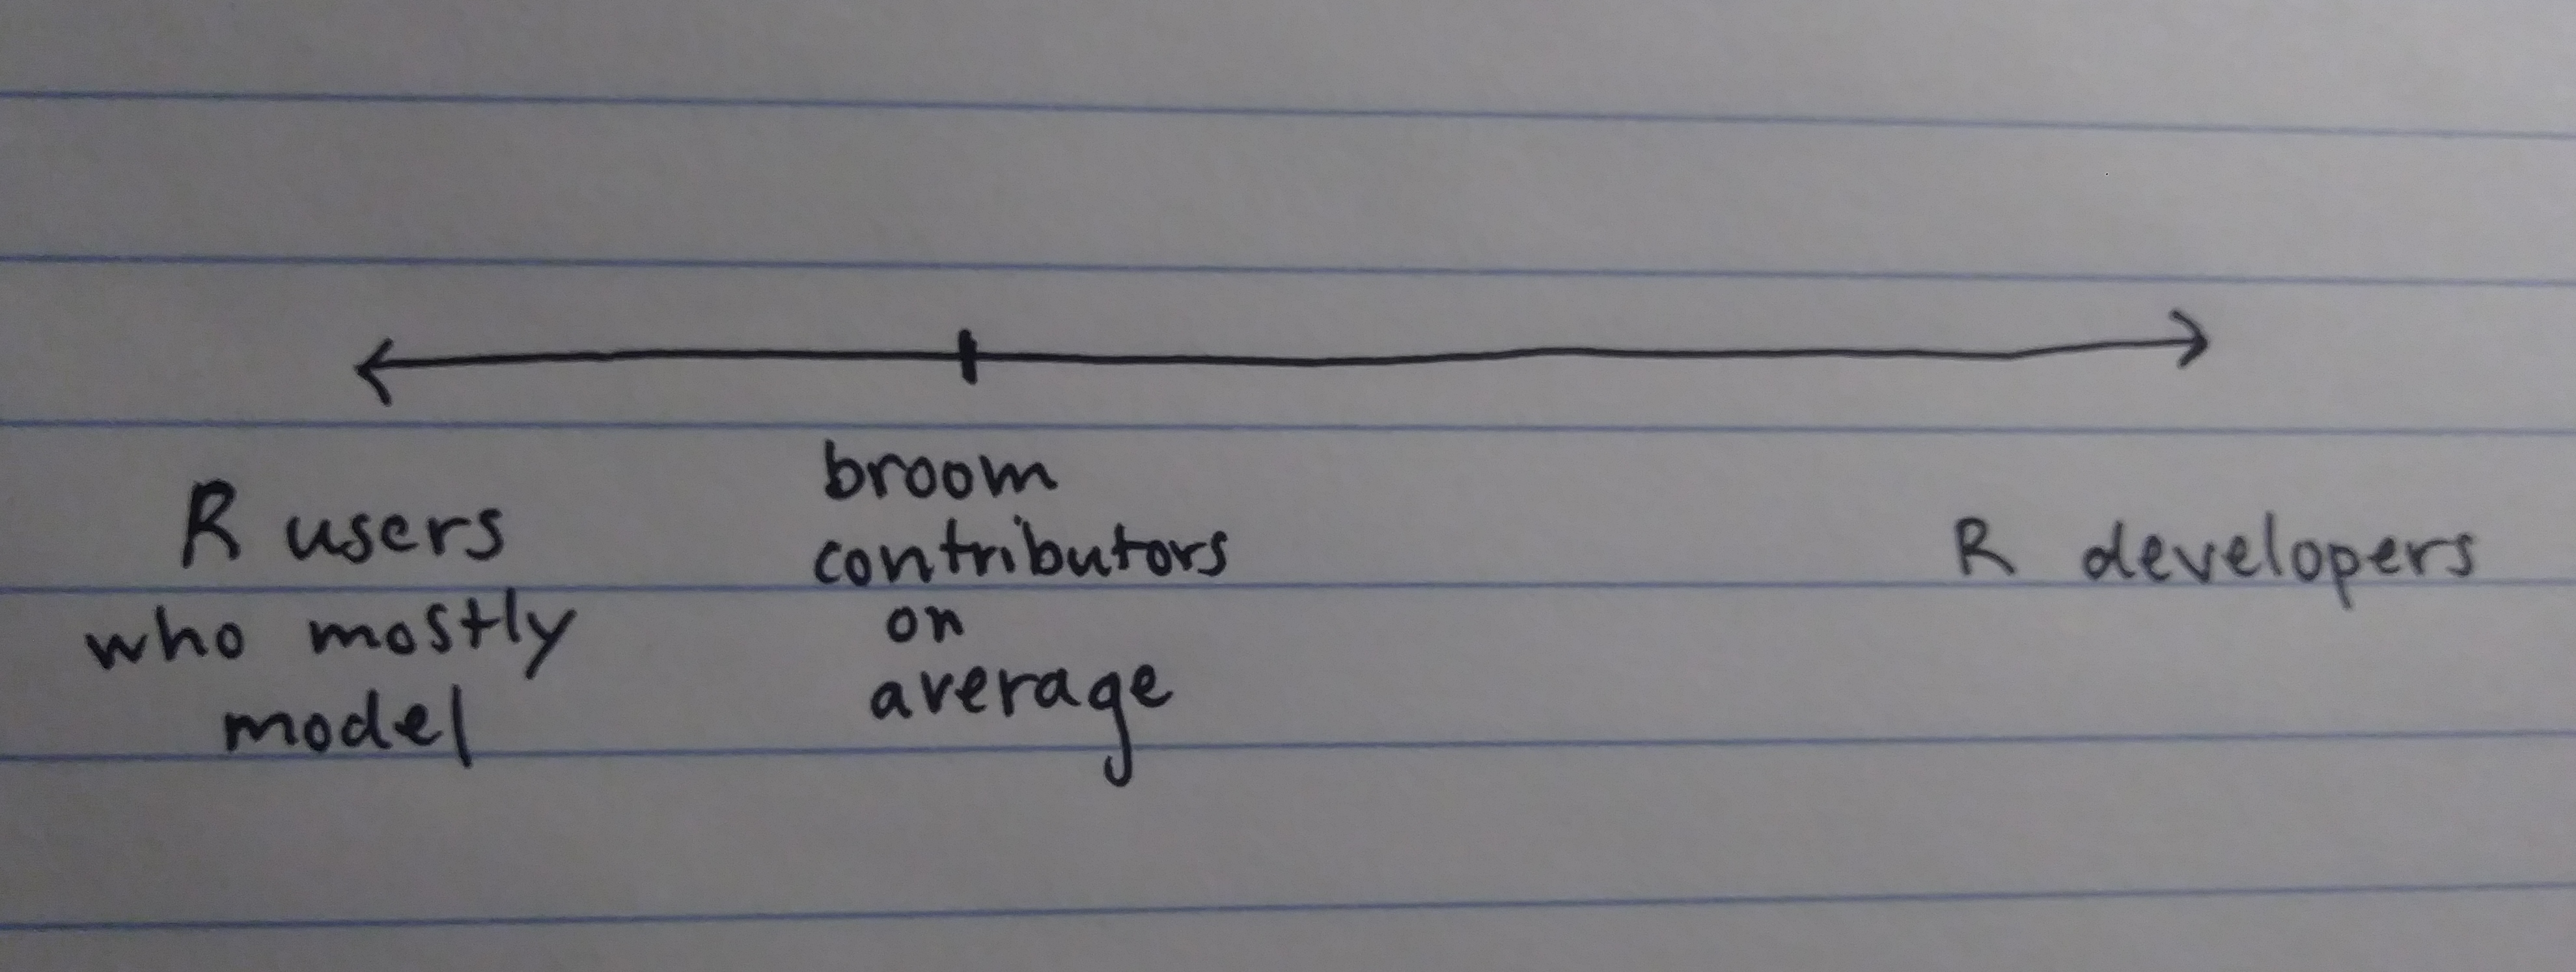 R users
who mostly
model
broom
contributors
on
average
R developers